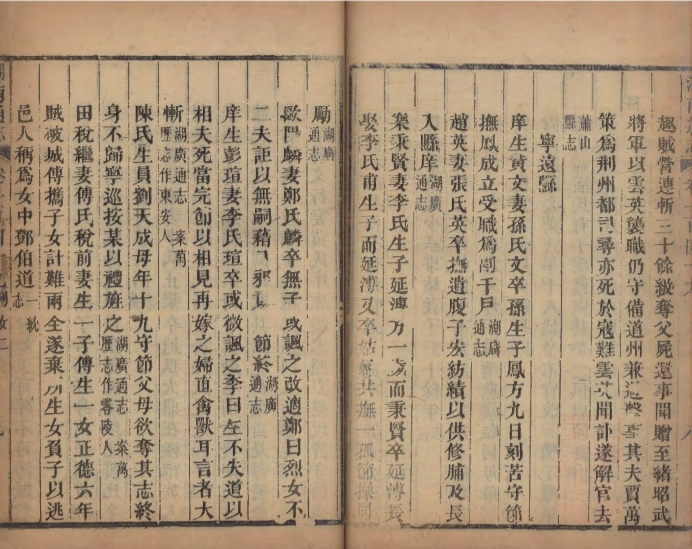 趣賊營連斬三十餘級奪父屍還事聞贈至緒昭武
將軍以雲英襲職仍守備道州兼其夫賈萬
策為荊州都司尋亦死於寇難雲英聞訃遂解官去
蕭山縣志
寧遠縣
庠生黃文妻孫氏文卒孫生子鳳方九日刻苦守節
撫鳳成立受職為副千戶湖廣通志
趙英妻張氏英卒撫遺腹子宏紡績以供修脯及長
入縣庠湖廣通志
樂秉賢妻李氏生子延溥方一歲而秉賢卒延溥長
娶李氏甫生子而延溥又卒姑共撫一孤節操同
勵湖廣通志
歐陽麟妻鄭氏麟卒無子或諷之改適鄭曰烈女不
二夫詎以無嗣藉口邪節終湖廣通志
庠生彭瑄妻李氏瑄卒或諷之李曰生不失道以
相夫死當完節以相見再嫁之婦直禽獸耳言者大
慚湖廣通志案萬歷志作東安人
陳氏生員劉天成母年十九守節父母欲奪其志終
身不歸寧巡按某以禮旌之湖廣通志案萬歷志作零陵人
田稅繼妻傅氏稅前妻生一子傅生一女正德六年
賊破城傅攜子女計難兩全遂棄所生女負子以逃
邑人稱為女中鄧伯道一統